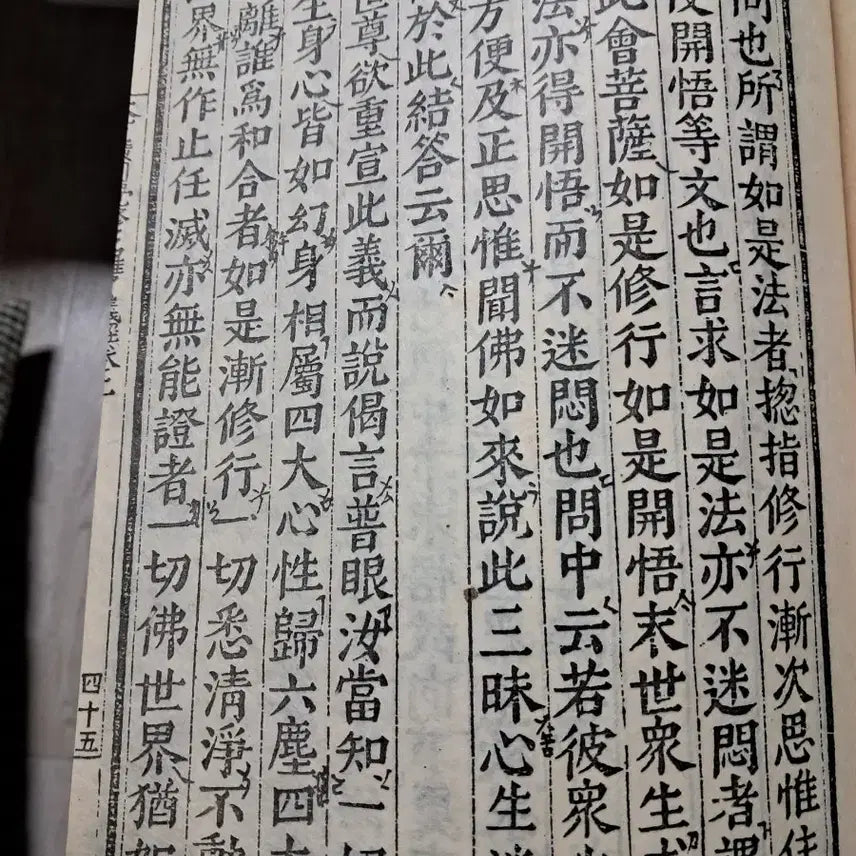 問也所謂如是法者揔指修行漸次思惟住
開悟等文也言求如是法亦不迷悶者謂
此會菩薩如是修行如是開悟末世衆生
法亦得開悟而不迷悶也問中云若彼衆
方便及正思惟聞佛如來說此三昧心生迷
於此結答云爾
世尊欲重宣此義而說偈言普眼汝當知一
生身心皆如幻身相屬四大心性歸六塵四大
離誰爲和合者如是漸修行一切悉清淨不動
界無作止任滅亦無能證者一切佛世界猶如
四十五